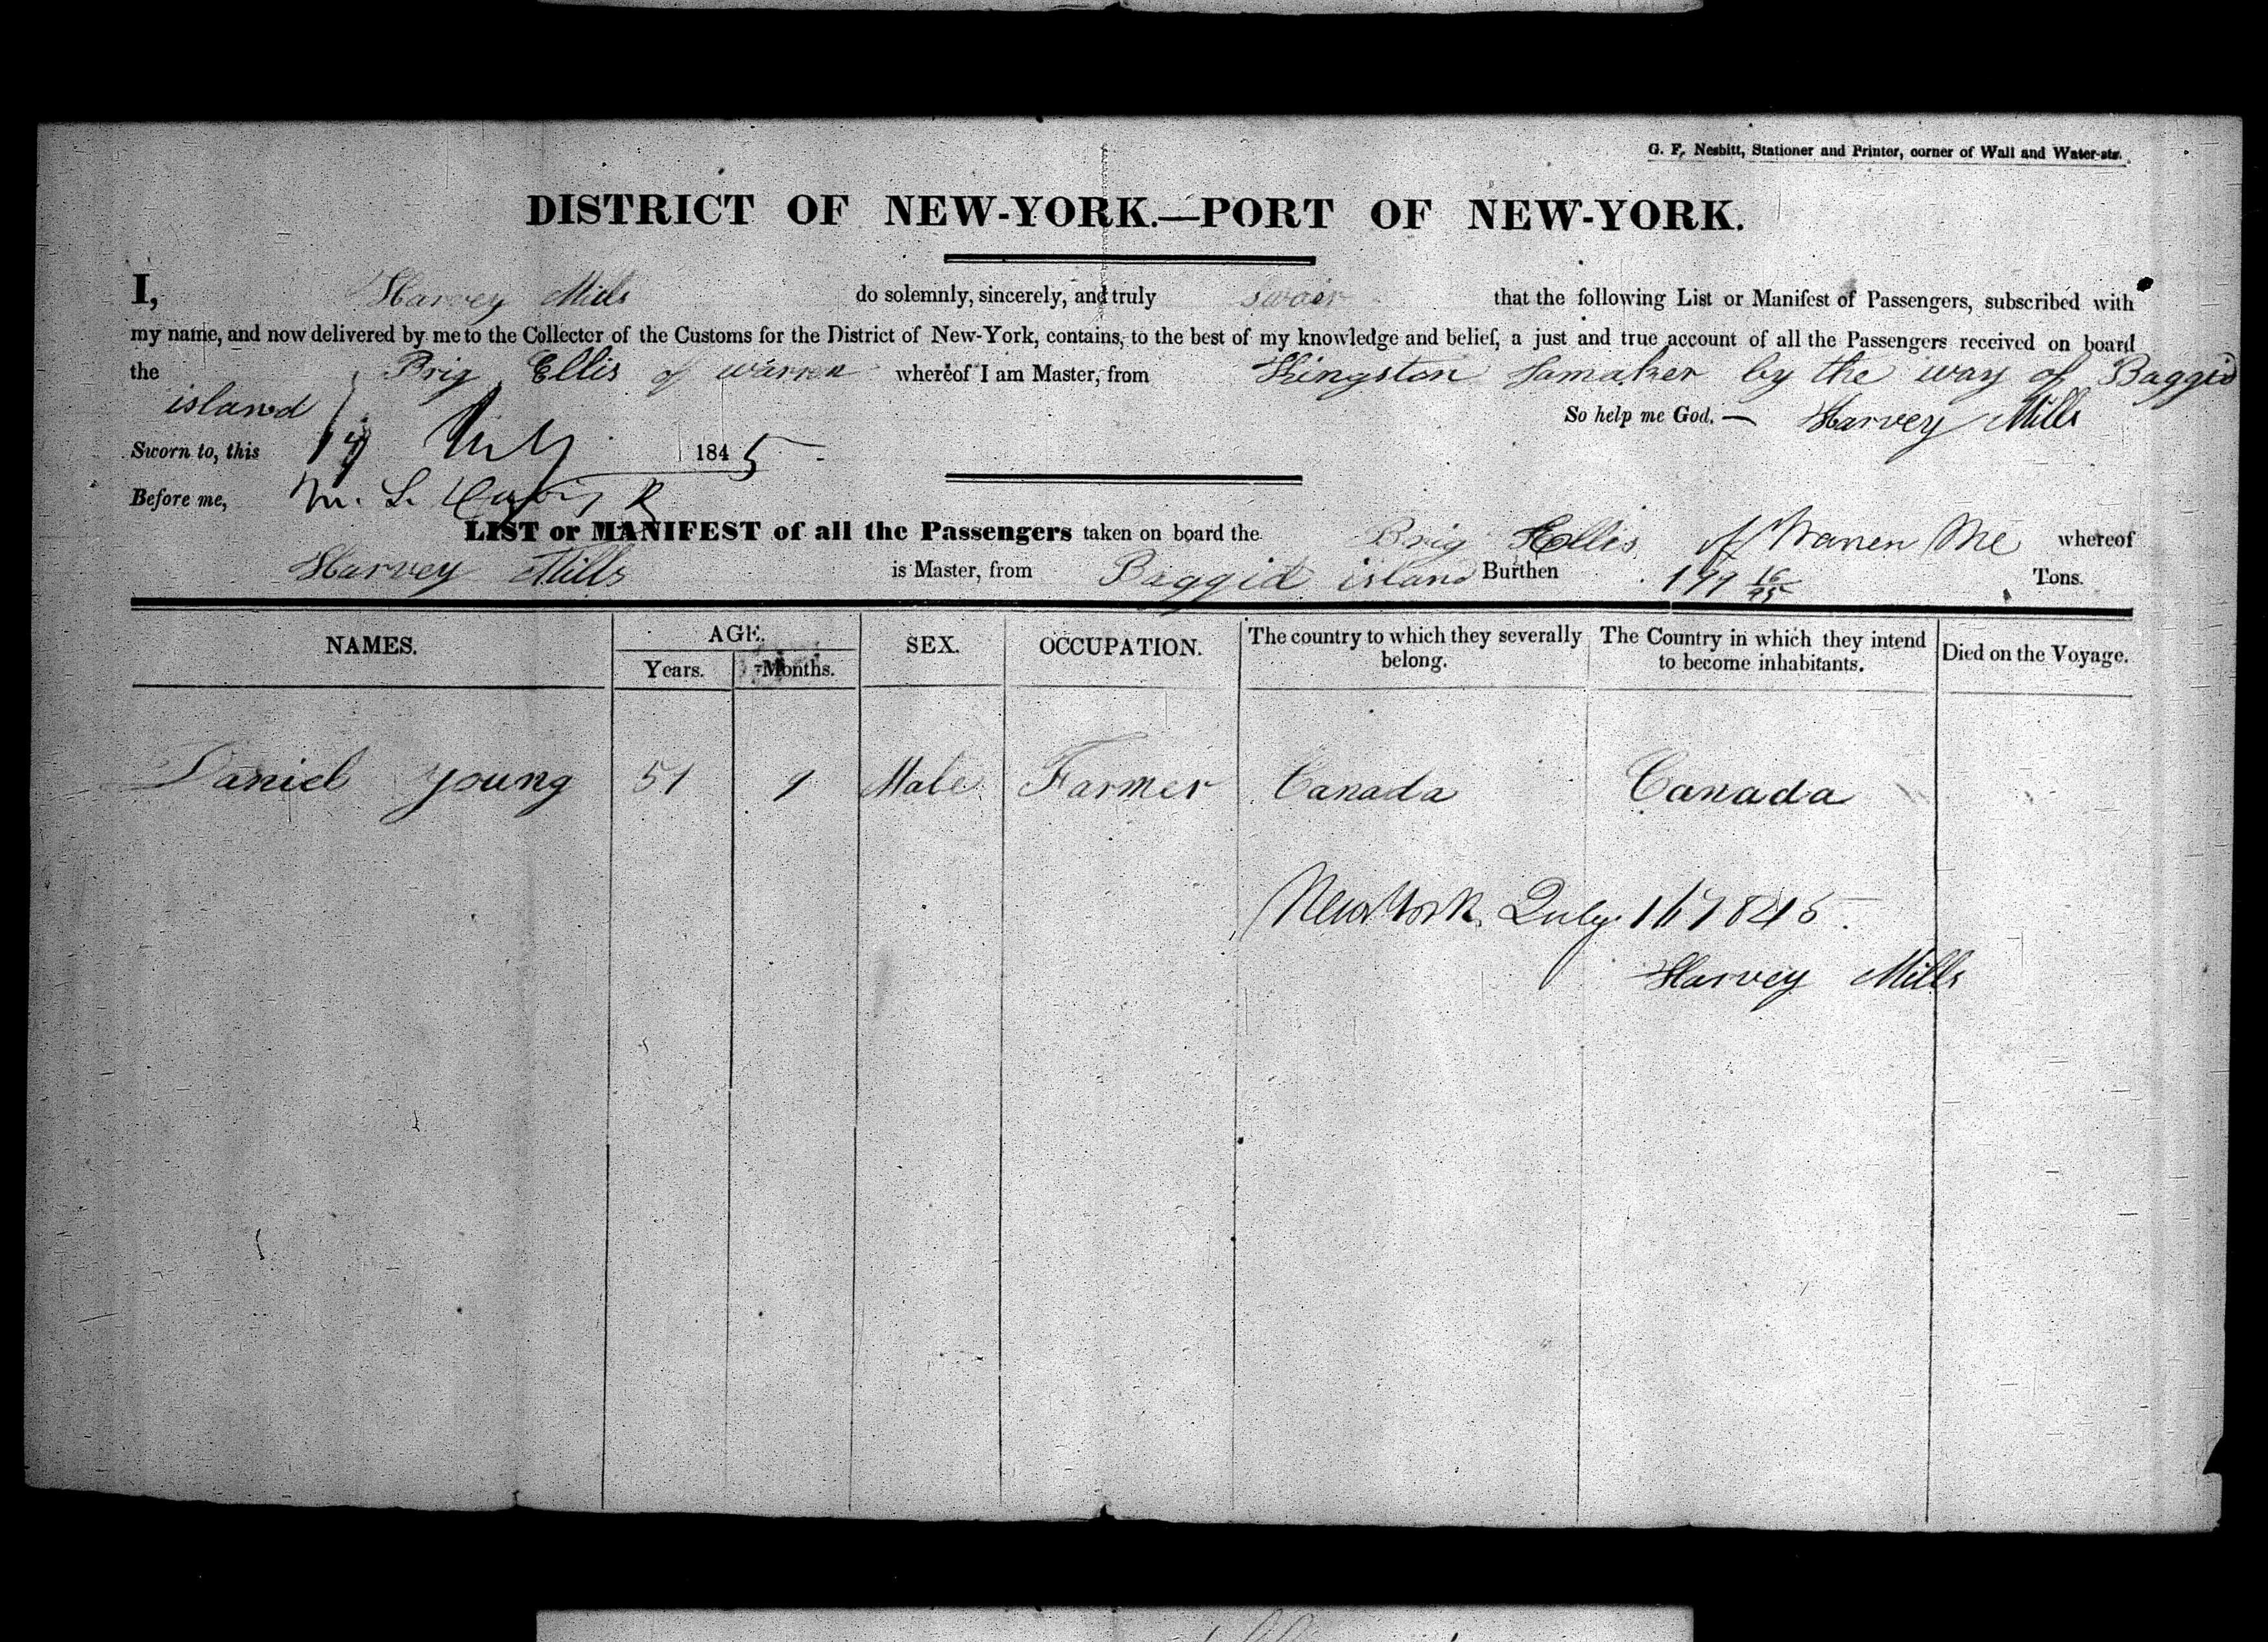 G. F. Nesbitt, Stationer and Printer, corner of Wall and Water-sts.
DISTRICT OF NEW-YORK.—PORT OF NEW-YORK.
I, Harvey Mills do solemnly, sincerely, and truly swair that the following List or Manifest of Passengers, subscribed with
my name, and now delivered by me to the Collector of the Customs for the District of New-York, contains, to the best of my knowledge and belief, a just and true account of all the Passengers received on board
the Brig Ellis of warren whereof I am Master, from Kingston Jamaker by the way of Baggid
island So help me God.— Harvey Mills
Sworn to, this July 1845
Before me, M. L.
LIST or MANIFEST of all the Passengers taken on board the Brig Ellis of Warren Me whereof
Harvey Mills is Master, from Baggid island Burthen 199 16/95 Tons.
NAMES. AGE. SEX. OCCUPATION. The country to which they severally belong. The Country in which they intend to become inhabitants. Died on the Voyage.
Years. Months.
Daniel young 51 9 Male Farmer Canada Canada
New York July 1845
Harvey Mills